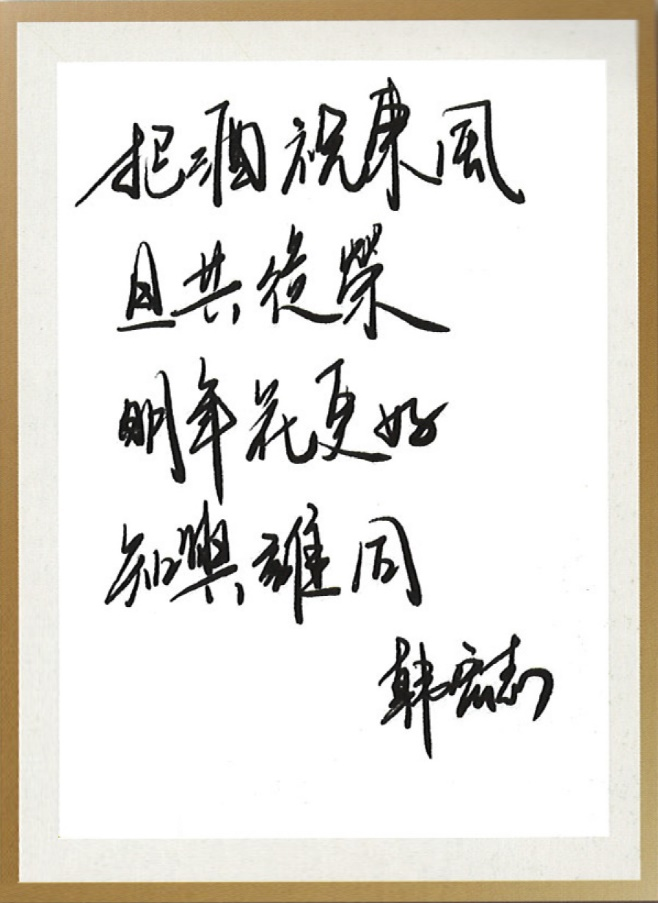 把酒祝東風
且共從榮
明年花更好
知與誰同
韩宏志